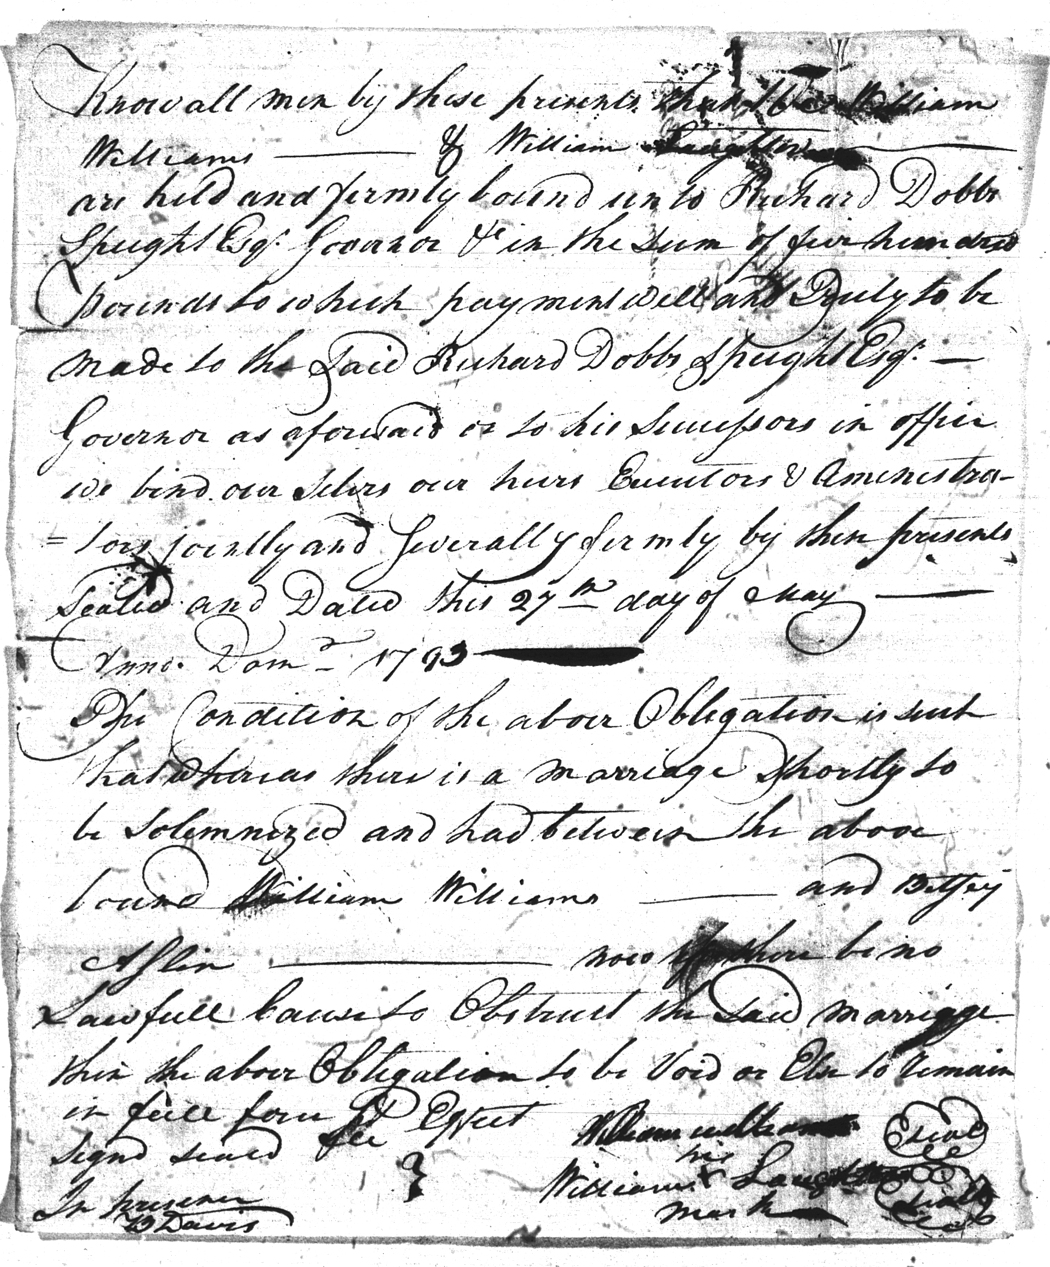 Know all men by these presents that We William
Williams & William Laughter
are held and firmly bound unto Richard Dobbs
Speight Esqr. Governor &c in the sum of five hundred
pounds to which payment well and Truly to be
made to the Said Richard Dobbs Speight Esqr. —
Governor as aforesaid or to his Successors in office
we bind our selves our heirs Executors & Aministra-
=tors jointly and Severally firmly by these presents
Sealed and Dated this 27th day of May —
Anno. Dom. 1793
The Condition of the above Obligation is such
that whereas there is a marriage Shortly to
be Solemnized and had between the above
bound William Williams — and Betsey
Aslin — now if there be no
Lawfull Cause to Obstruct the Said marriage
then the above Obligation to be Void or Else to Remain
in full force & Effect
Signd seald
In presence
B Davis
William williams Seal
William his x mark Laughter Seal